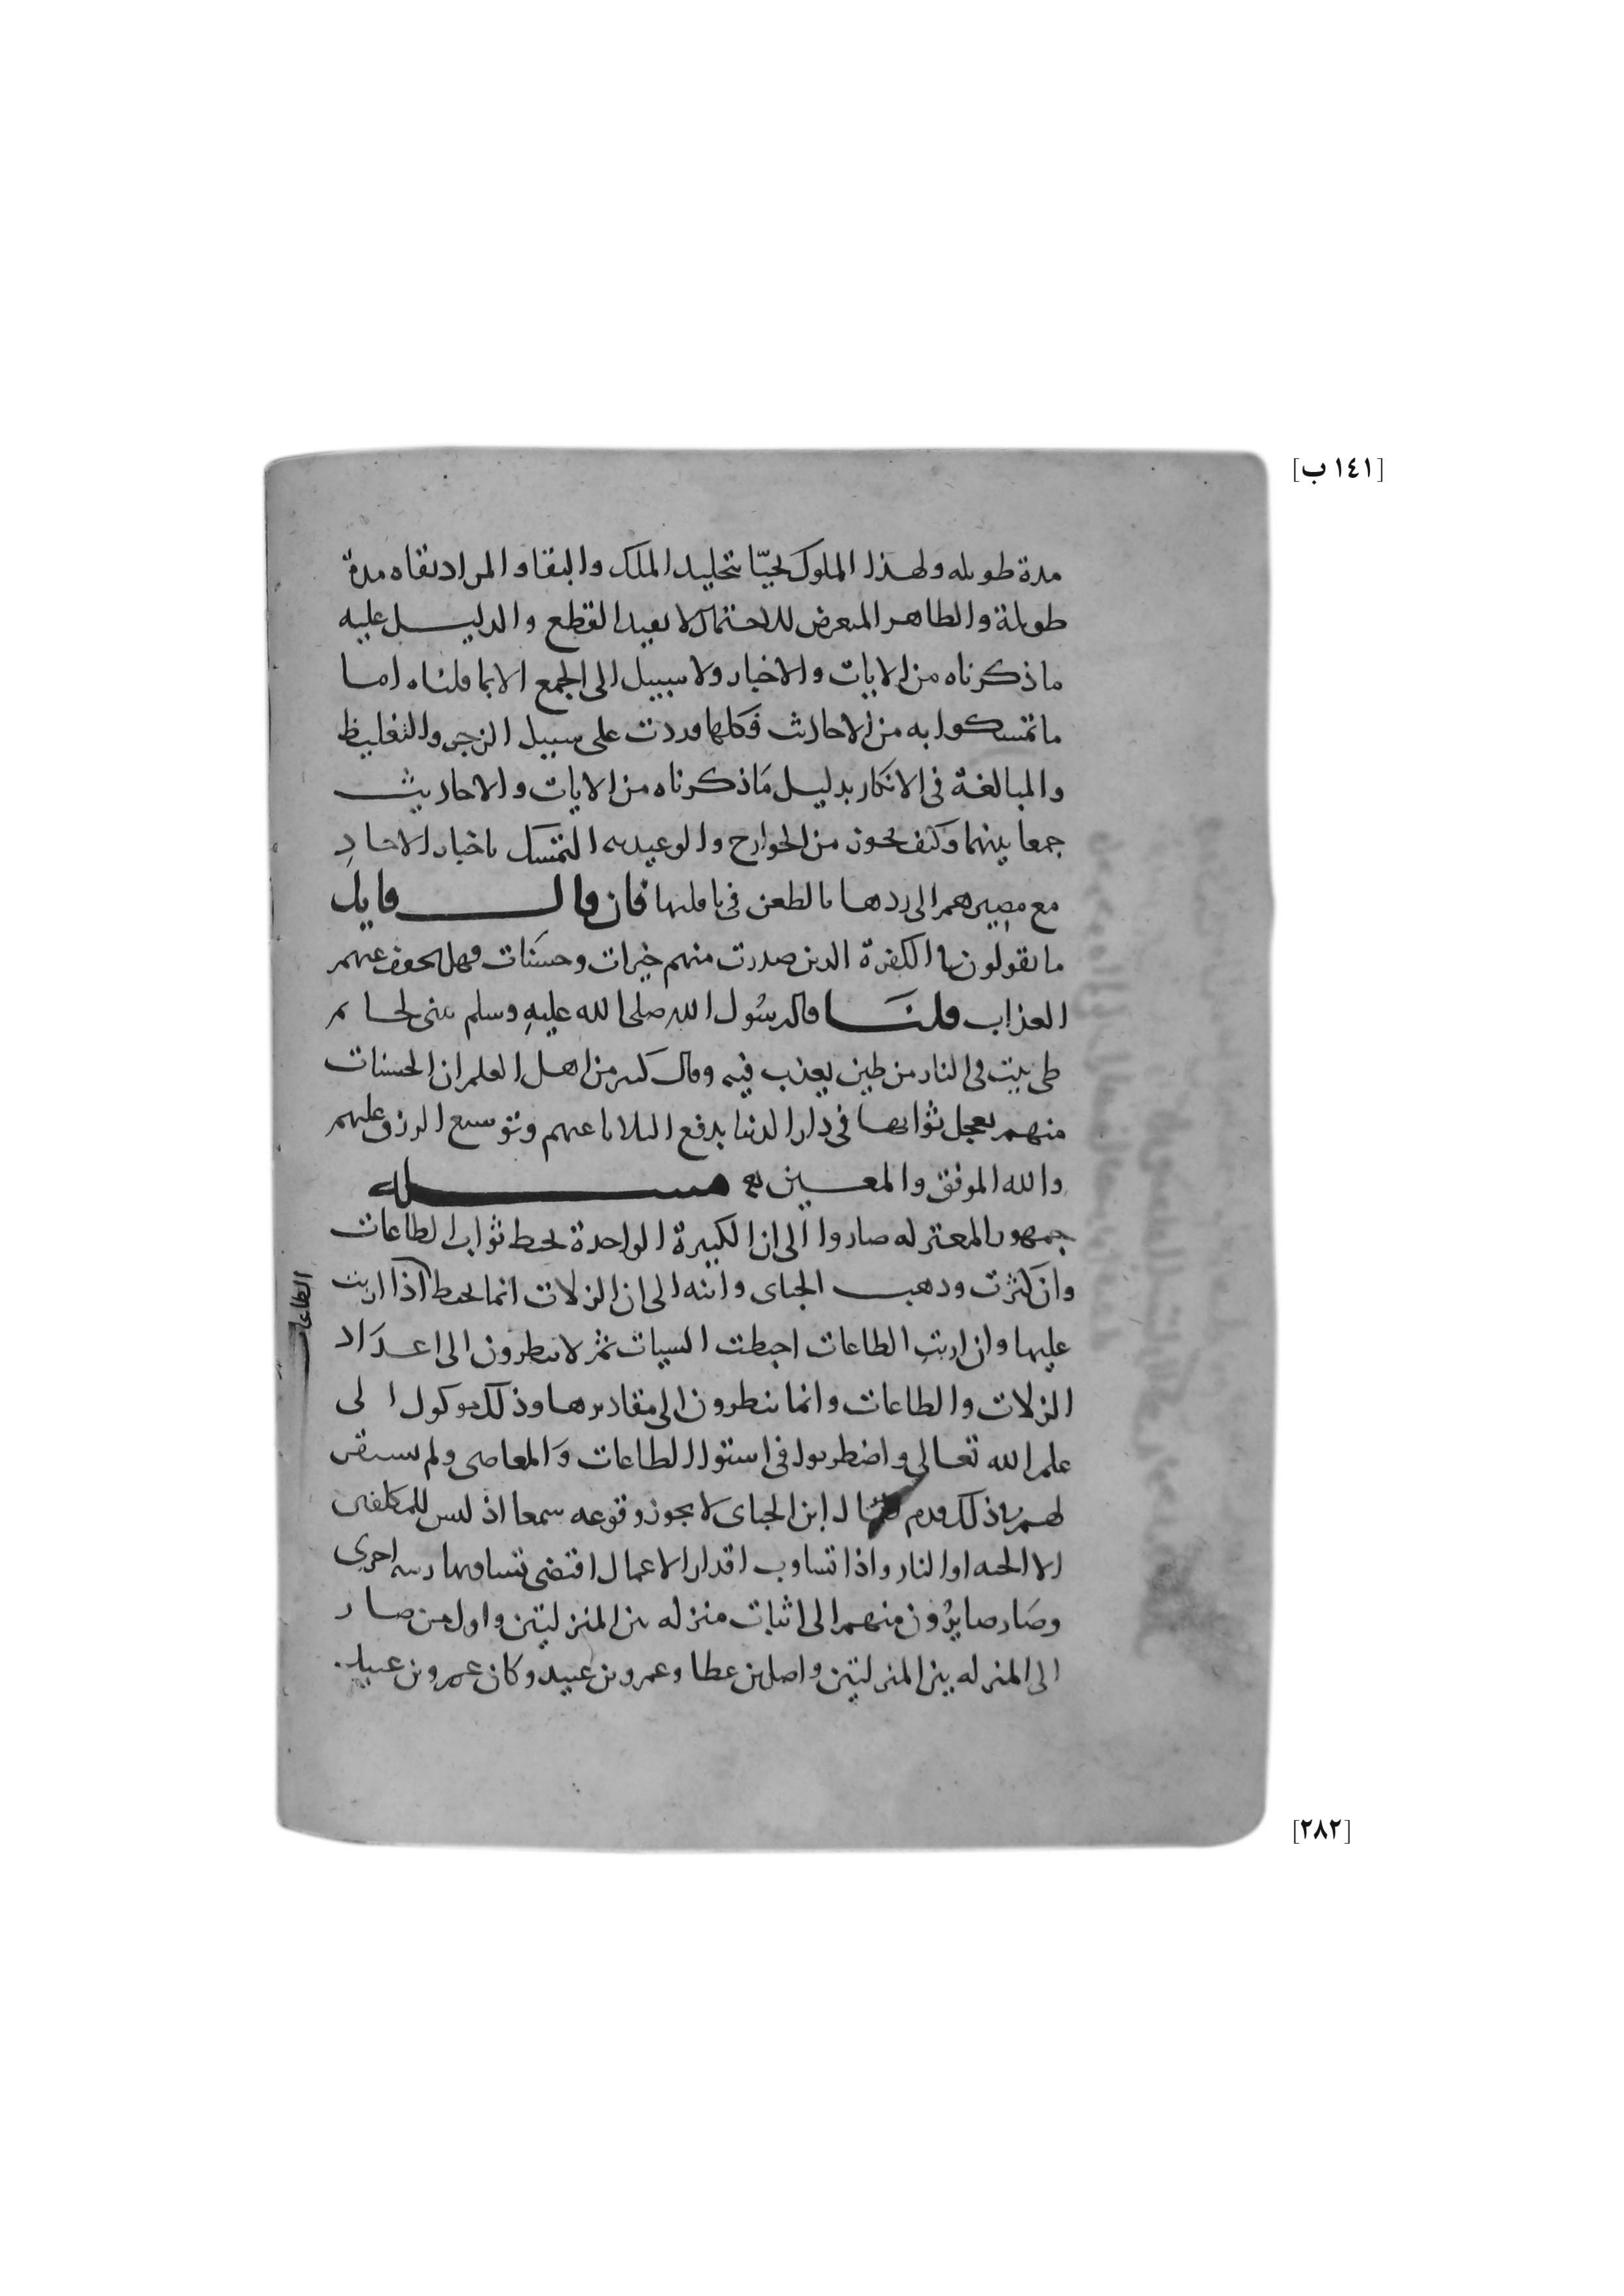 [١٤١ ب]
مدة طويله ولهذا الملوك تحيّا بتخليد الملك والبقا والمراد بقاه مدة
طويلة والظاهر المتعرض للاحتمال لا يفيد القطع والدليل عليه
ما ذكرناه من الايات والاخبار ولا سبيل الى الجمع الا بما قلناه اما
ما تمسكوا به من الاحاديث فكلها وردت على سبيل الزجر والتغليظ
والمبالغة في الانكار بدليل ما ذكرناه من الايات والاحاديث
جمعا بينهما وكيف يجوز من الخوارج والوعيديه التمسك باخبار الاحادِ
مع مصيرهم الى ردها بالطعن في ناقليها فان قال قايل
ما تقولون في الكفرة الذين صدرت منهم خيرات وحسنات فهل يخفف عنهم
العذاب قلنا قال رسُول الله صلى الله عليهِ وسلم بنى لحاتم
طي بيت في النار من طين يعذب فيه وقال كثير من اهل العلم ان الحسنات
منهم يعجل ثوابها في دار الدنيا بدفع البلايا عنهم وتوسيع الرزق عليهم
والله الموفق والمعين مسله
جمهور المعتزله صاروا الى ان الكبيرة الواحدة تحبط ثواب الطاعات
وان كثرت وذهب الجباى وابنه الى ان الزلات انما تحبط اذا اربت
الطاعات
عليها وان اربتِ الطاعات احبطت السيات ثم لا ينظرون الى اعداد
الزلات والطاعات وانما ينظرون الى مقاديرها وذلك موكول الى
علم الله تعالى واضطربوا في استوا الطاعات والمعاصى ولم يستقر
لهم في ذلك قدم قال ابن الجباى لا يجوز وقوعه سمعا اذ ليس للمكلفين
الا الجنه او النار واذا تساوت اقدار الاعمال اقتضى تساويها رتبه اخرى
وصَار صايرُون منهم الى اثبات منزله بين المنزلتين واول من صار
الى المنزله بين المنزلتين واصل بن عطا وعمرو بن عبيد وكان عمرو بن عبيد
[٢٨٢]